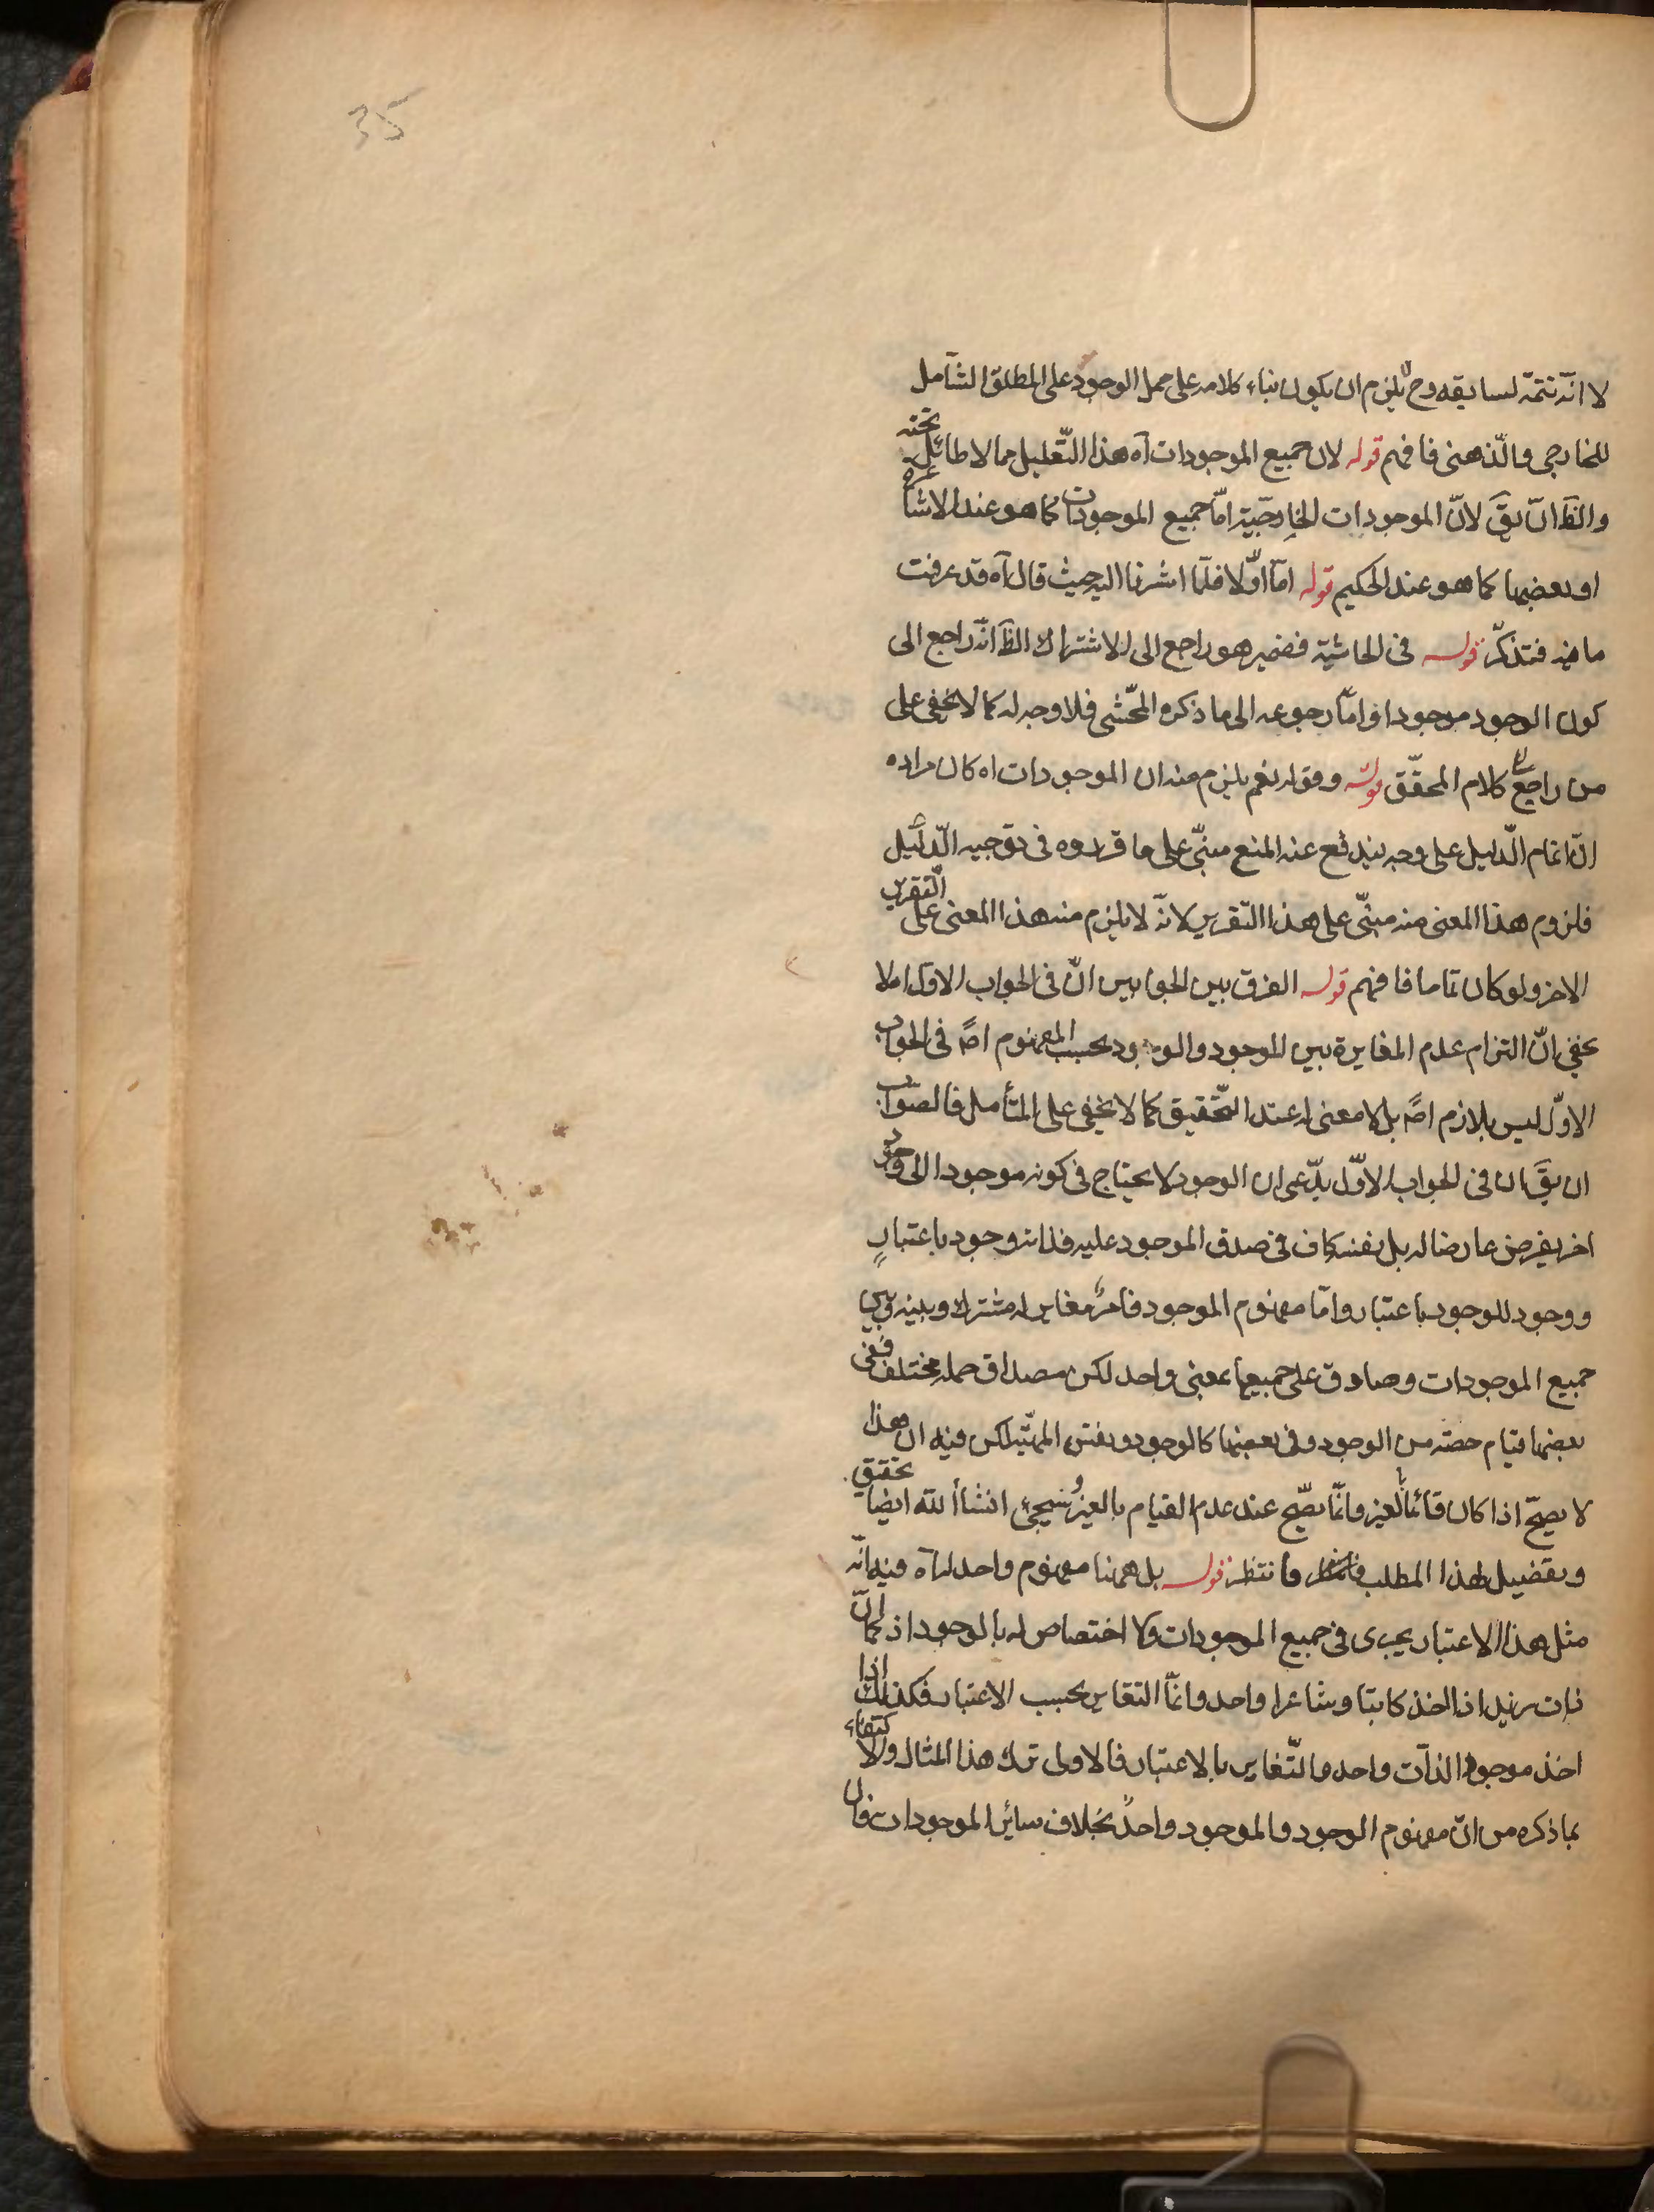 35
لا انّه تتمّة لسابقه وح لا يلزم ان يكون بناء كلامه على حمل الوجود على المطلق الشامل
للخارجى والذّهنى فافهم قوله لان جميع الموجودات آه هذا التّعليل مما لا طائل تحته
والظَ انّ يقَ لانّ الموجودات الخارجيّة امّا جميع الموجودات كما هو عند الاشاعرة
او بعضها كما هو عند الحكيم قوله امّا اوّلا فلما اشرنا اليه حيث قال آه قد عرفت
ما فيه فتذكّر قوله فى الحاشية فضمير هو راجع الى الاشتراك الظَ انّه راجع الى
كون الوجود موجودا وامّا رجوعه الى ما ذكره المحّشى فلا وجه له كما لا يخفى على
من راجع الى كلام المحقّق قوله وقوله نعم يلزم منه ان الموجودات اه كان مراده
انّ اتمام الدّليل على وجه يندفع عنه المنع مبنىّ على ما قرروه فى توجيه الدّليل
فلزوم هذا المعنى منه مبنىّ على هذا التّقرير لانّه لا يلزم منه هذا المعنى على التّقرير
الاخر ولو كان تماما فافهم قوله الفرق بين الجوابين انّ فى الجواب الاول اه لا
يخفى انّ التزام عدم المغايرة بين الموجود والوجود بحسب المفهوم اصً فى الجواب
الاوّل ليس بلازم اصً بل لا معنى له عند التّحقيق كما لا يخفى على المتأمل فالصواب
ان يقَ ان فى الجواب الاوّل يدّعى ان الوجود لا يحتاج فى كونه موجودا الى وجود
اخر يفرض عارضا له بل نفسه كاف فى صدق الموجود عليه فذاته وجود باعتبارٍ
ووجود للوجود باعتبار وامّا مفهوم الموجود فامر مغاير له مشترك وبينه وبين
جميع الموجودات وصادق على جميعها بمعنى واحد لكن مصداق حمله مختلف ففى
بعضها قيام حصّة من الوجود وفى بعضها كالوجود ونفس المهيّة لكن فيه ان هذا
لا يصحّ اذا كان قائما بالغير وانّما يصّح عند عدم القيام بالغير وسيجئ انشاأ الله ايضا تحقيق
وتفضيل لهذا المطلب فانتظر قوله بل ههنا مفهوم واحد له آه فيه انّه
مثل هذا الاعتبار يجرى فى جميع الموجودات ولا اختصاص له بالوجود اذ كما انّ
ذات زيد اذا اخذ كاتبا وشاعرا واحد وانّما التّغاير بحسب الاعتبار فكذلك اذا
اخذ موجودا الذّات واحد والتّغاير بالاعتبار فالاولى ترك هذا المثال والاكتفاء
بما ذكره من انّ مفهوم الوجود والموجود واحد بخلاف سائر الموجودات فان